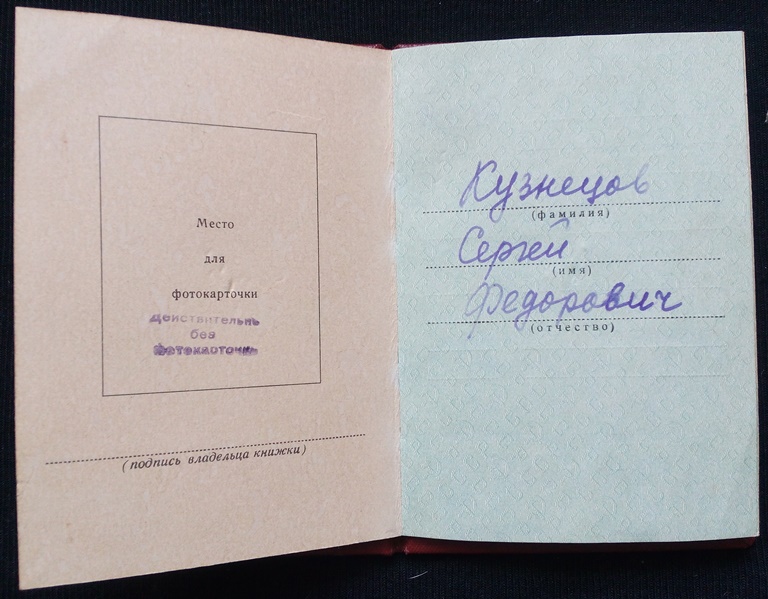 Место
для
фотокарточки
Действительно
без
фотокарточки
(подпись владельца книжки)
Кузнецов
(фамилия)
Сергей
(имя)
Федорович
(отчество)